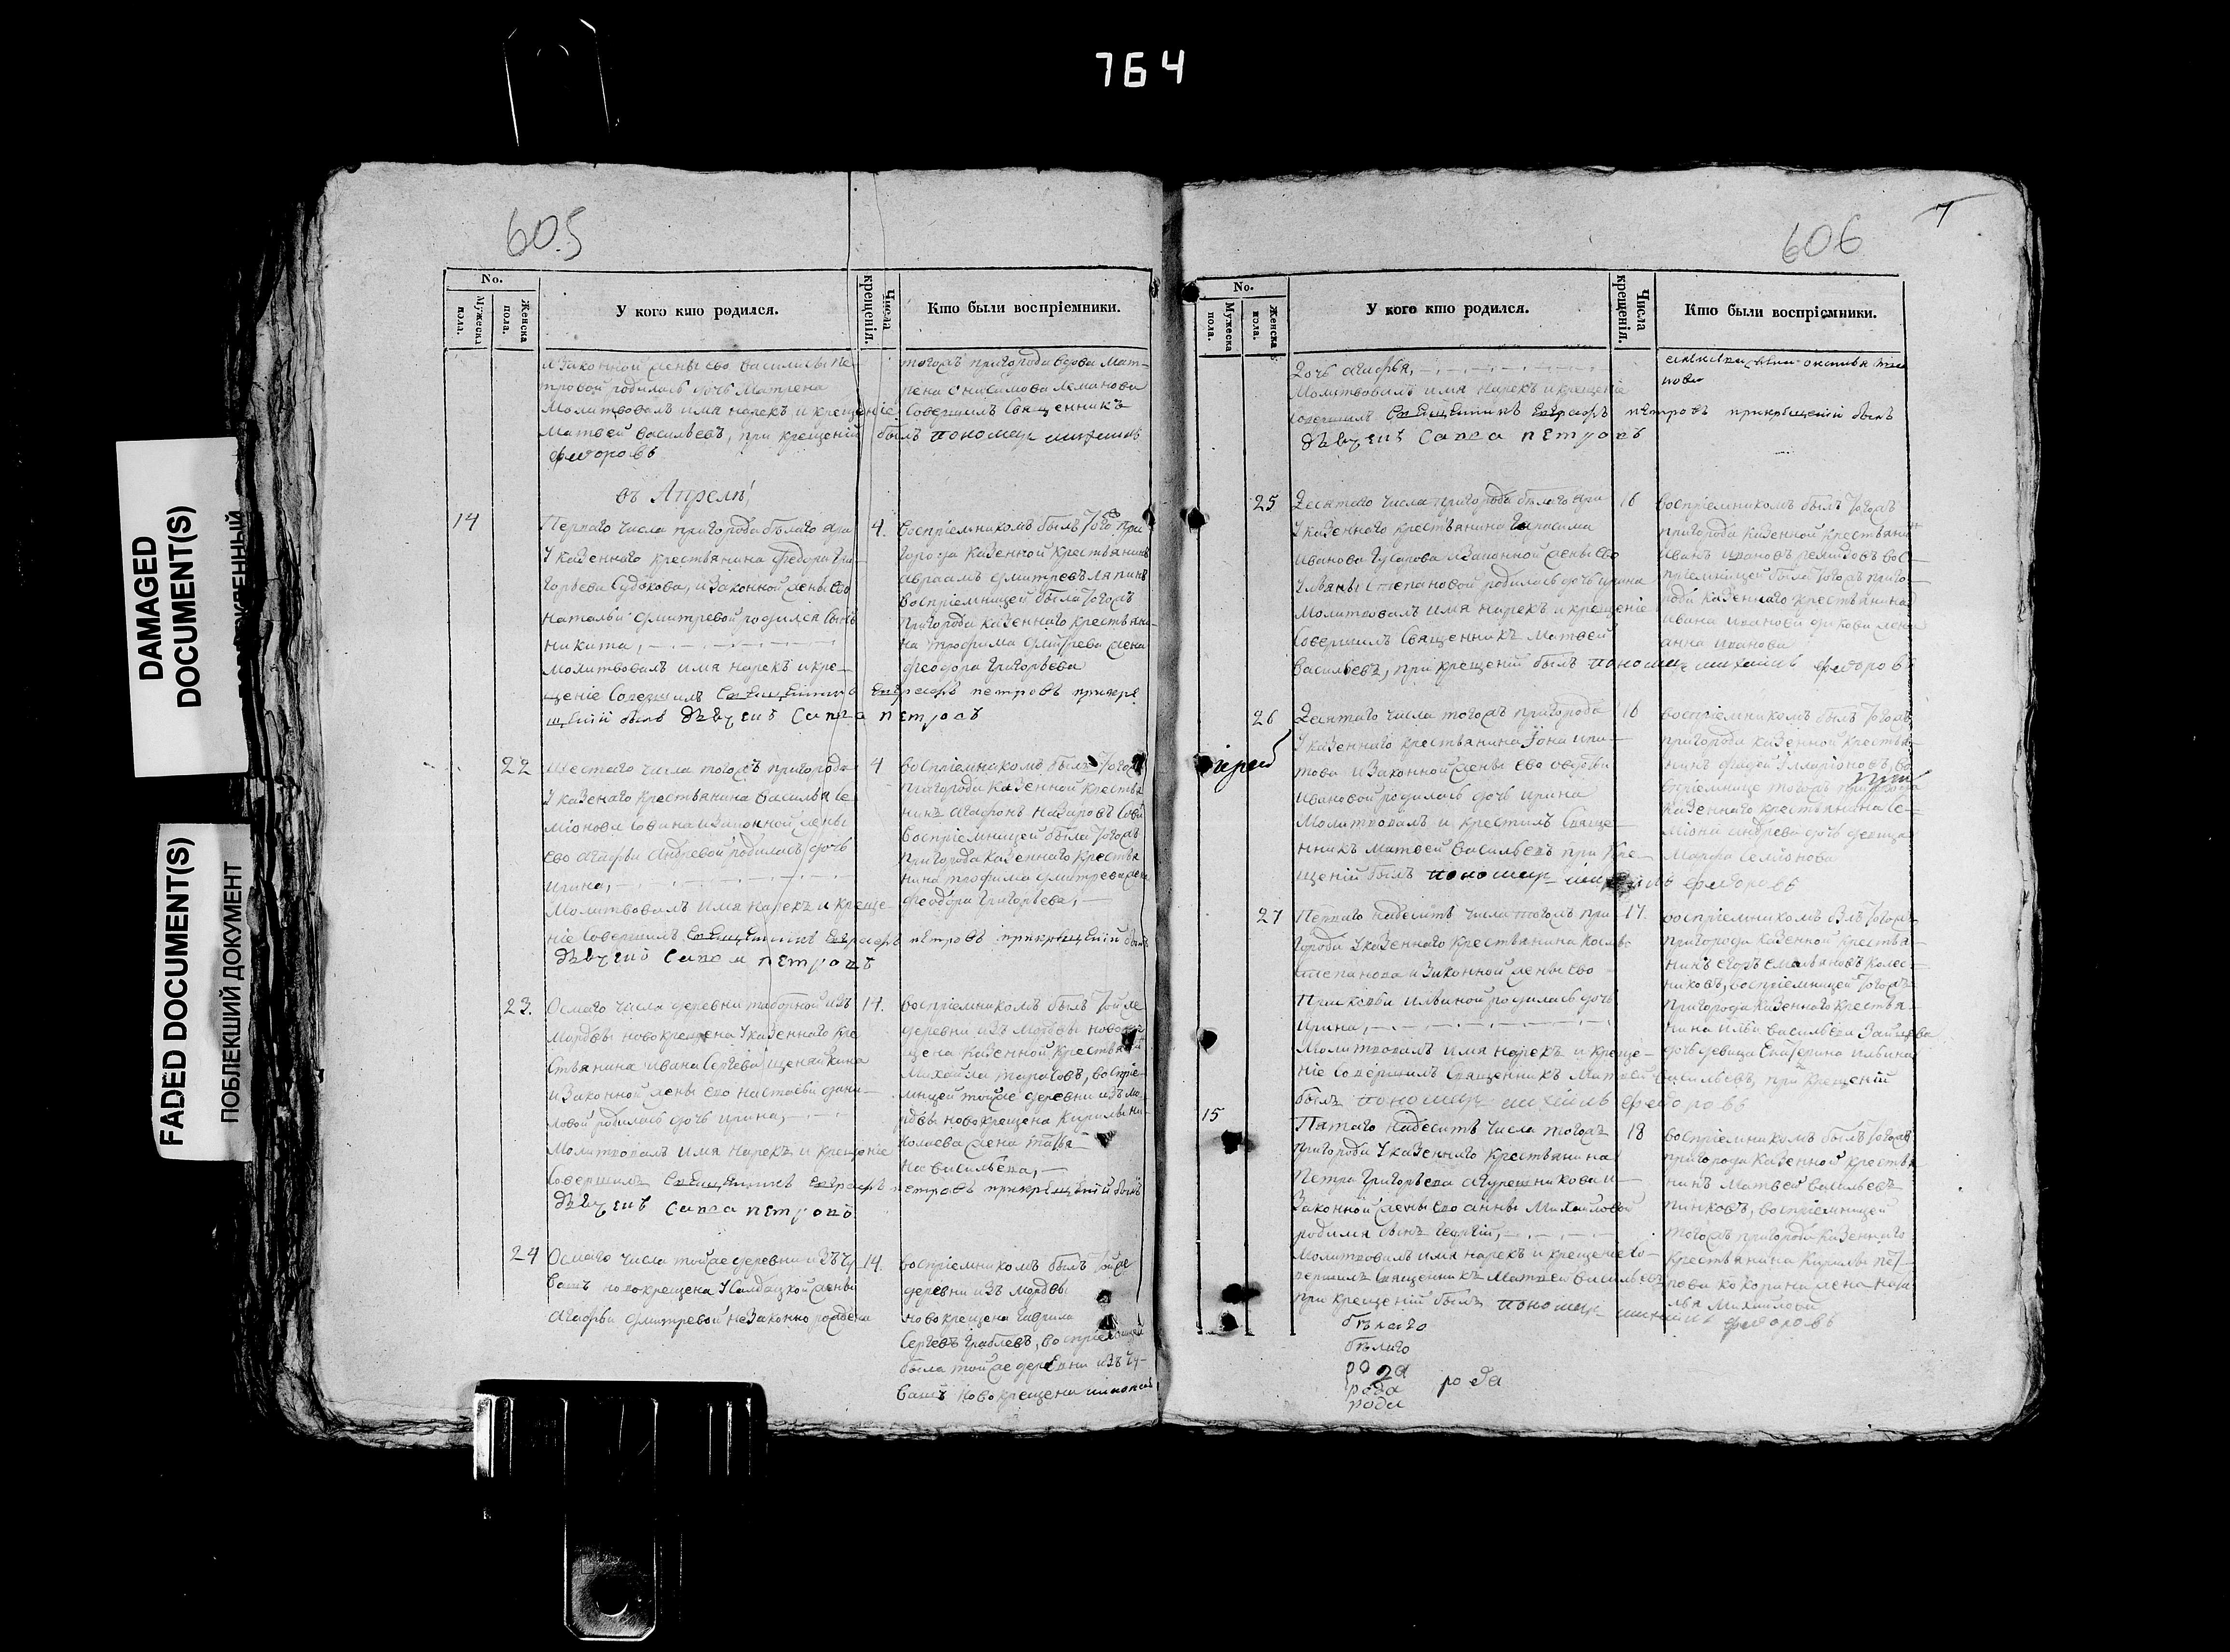 764
DAMAGED
DOCUMENT(S)
FADED DOCUMENT(S)
ПОБЛЕКШИЙ ДОКУМЕНТ
605
No.
Мужеска пола.
Женска пола.
У кого кто родился.
Числа крещенія.
Кто были воспріемники.
и законной жены его Василисы Пе-
тровой родилась дочь Матрена
Молитвовалъ имя нарекъ и крещеніе
Матвей Васильевъ, при крещеніи былъ пономарь
федоровъ
тогожъ пригорода вдова Мат-
рена
Совершилъ Священникъ
въ Апрелѣ
14
Перваго числа пригорода бѣлаго яра
У казеннаго крестьянина Федора Гри-
горьева Судокова, и законной жены его
Натальи Дмитревой родился сынъ
Никита,
молитвовалъ имя нарекъ и кре-
щеніе Совершилъ Священникъ Евграфъ петровъ прикре
щеніи былъ дьячекъ Савва петровъ
4.
Воспріемникомъ былъ того при
города казенной крестьянинъ
Авраамъ Дмитревъ Ляпинъ
Воспріемницей была тогожъ
пригорода казеннаго крестьяни-
на Трофима Дмитрева жена
Феодора Григорьева
22
Шестаго числа тогожъ пригорода
У казенаго крестьянина Василья Се
міонова
его Агафьи Андревой родилась дочь
ирина,
Молитвовалъ имя нарекъ и креще-
ніе Совершилъ Священникъ Евграфъ петровъ прикрещеніи былъ
дьячекъ Савва петровъ
4
воспріемникомъ былъ тогожъ
пригорода казенной крестья
нинъ Агафонъ Назаровъ
воспріемницей была тогожъ
пригорода казеннаго крестья
нина трофима Дмитрева жена
Феодора Григорьева,
23.
Осмаго числа деревни таборной изъ
Мордвы новокрещена У казеннаго кре
стьянина Ивана Сергева
и законной жены его Настасьи Дани-
ловой родилась дочь ирина,
Молитвовалъ имя нарекъ и крещеніе
Совершилъ Священникъ Евграфъ петровъ прикрещеніи былъ
дьячекъ Савва петровъ
14.
воспріемникомъ былъ той же
деревни изъ мордвы новокре
щена казенной крестьянинъ
Михайла Тарасовъ, воспріе-
мницей той же деревни изъ мо-
рдвы новокрещена Кирилы ни-
колаева жена татья-
на васильева,
24
Осмаго числа той же деревни изъ чу-
вашъ новокрещена У Салдацкой жены
Агафьи Дмитревой незаконно рождена
14.
воспріемникомъ былъ той же
деревни изъ мордвы
новокрещена Гаврила
Сергевъ воспріемницей
была той же деревни изъ чу-
вашъ новокрещена
606
7
No.
Мужеска пола.
Женска пола.
У кого кто родился.
Числа крещенія.
Кто были воспріемники.
дочь Агафья,
Молитвовалъ имя нарекъ и крещеніе
совершилъ Священникъ Евграфъ петровъ прикрещеніи былъ
дьячекъ Савва петровъ
25
Десятаго числа пригорода бѣлаго яра
У казеннаго крестьянина Гарасима
Иванова Гусарова и законной жены его
Ульяны Степановой родилась дочь ирина
Молитвовалъ имя нарекъ и крещеніе
Совершилъ Священникъ Матвей
Васильевъ, при крещеніи былъ пономарь михаилъ федоровъ
16
воспріемникомъ былъ тогожъ
пригорода казенной крестьянинъ
Иванъ Ивановъ Ремизовъ вос-
пріемницей была тогожъ приго-
рода казеннаго крестьянина
Ивана Иванова жена
Анна Иванова
26
Десятаго числа тогожъ пригорода
У казеннаго крестьянина Iона
и законной жены его
Ивановой родилась дочь ирина
Молитвовалъ и крестилъ Свяще-
нникъ Матвей Васильевъ при кре-
щеніи былъ пономарь михаилъ федоровъ
16
воспріемникомъ былъ тогожъ
пригорода казенной крестья-
нинъ Фадей Илларіоновъ, во
спріемница тогожъ пригорода
казеннаго крестьянина Се-
міона Андрева дочь девица
Марфа Семіонова
27
Пятаго надесить числа тогожъ при-
города У казеннаго крестьянина
Степанова и законной жены его
Прасковьи Ильиной родилась дочь
Ирина,
Молитвовалъ имя нарекъ и креще-
ніе Совершилъ Священникъ Матвей Васильевъ, при крещеніи
былъ пономарь михаилъ федоровъ
17.
воспріемникомъ былъ тогожъ
пригорода казенной крестья-
нинъ Егоръ Емельяновъ Колес-
никовъ, воспріемницей тогожъ
пригорода казеннаго крестья-
нина Ильи Васильева Зайцева
дочь девица Екатерина Ильина
15
Пятаго надесить числа тогожъ
пригорода У казеннаго крестьянина
Петра Григорьева
Законной жены его Анны Михайловой
родился сынъ Георгій,
Молитвовалъ имя нарекъ и крещеніе Со-
вершилъ Священникъ Матвей Васильевъ
при крещеніи былъ пономарь михаилъ федоровъ
18
воспріемникомъ былъ тогожъ
пригорода казенной крестья
нинъ Матвей Васильевъ
воспріемницей
тогожъ пригорода казеннаго
крестьянина Кирилы Пет-
рова Кокорина жена Ната
лья Михайлова
бѣлаго
бѣлаго
рода
рода рода
рода